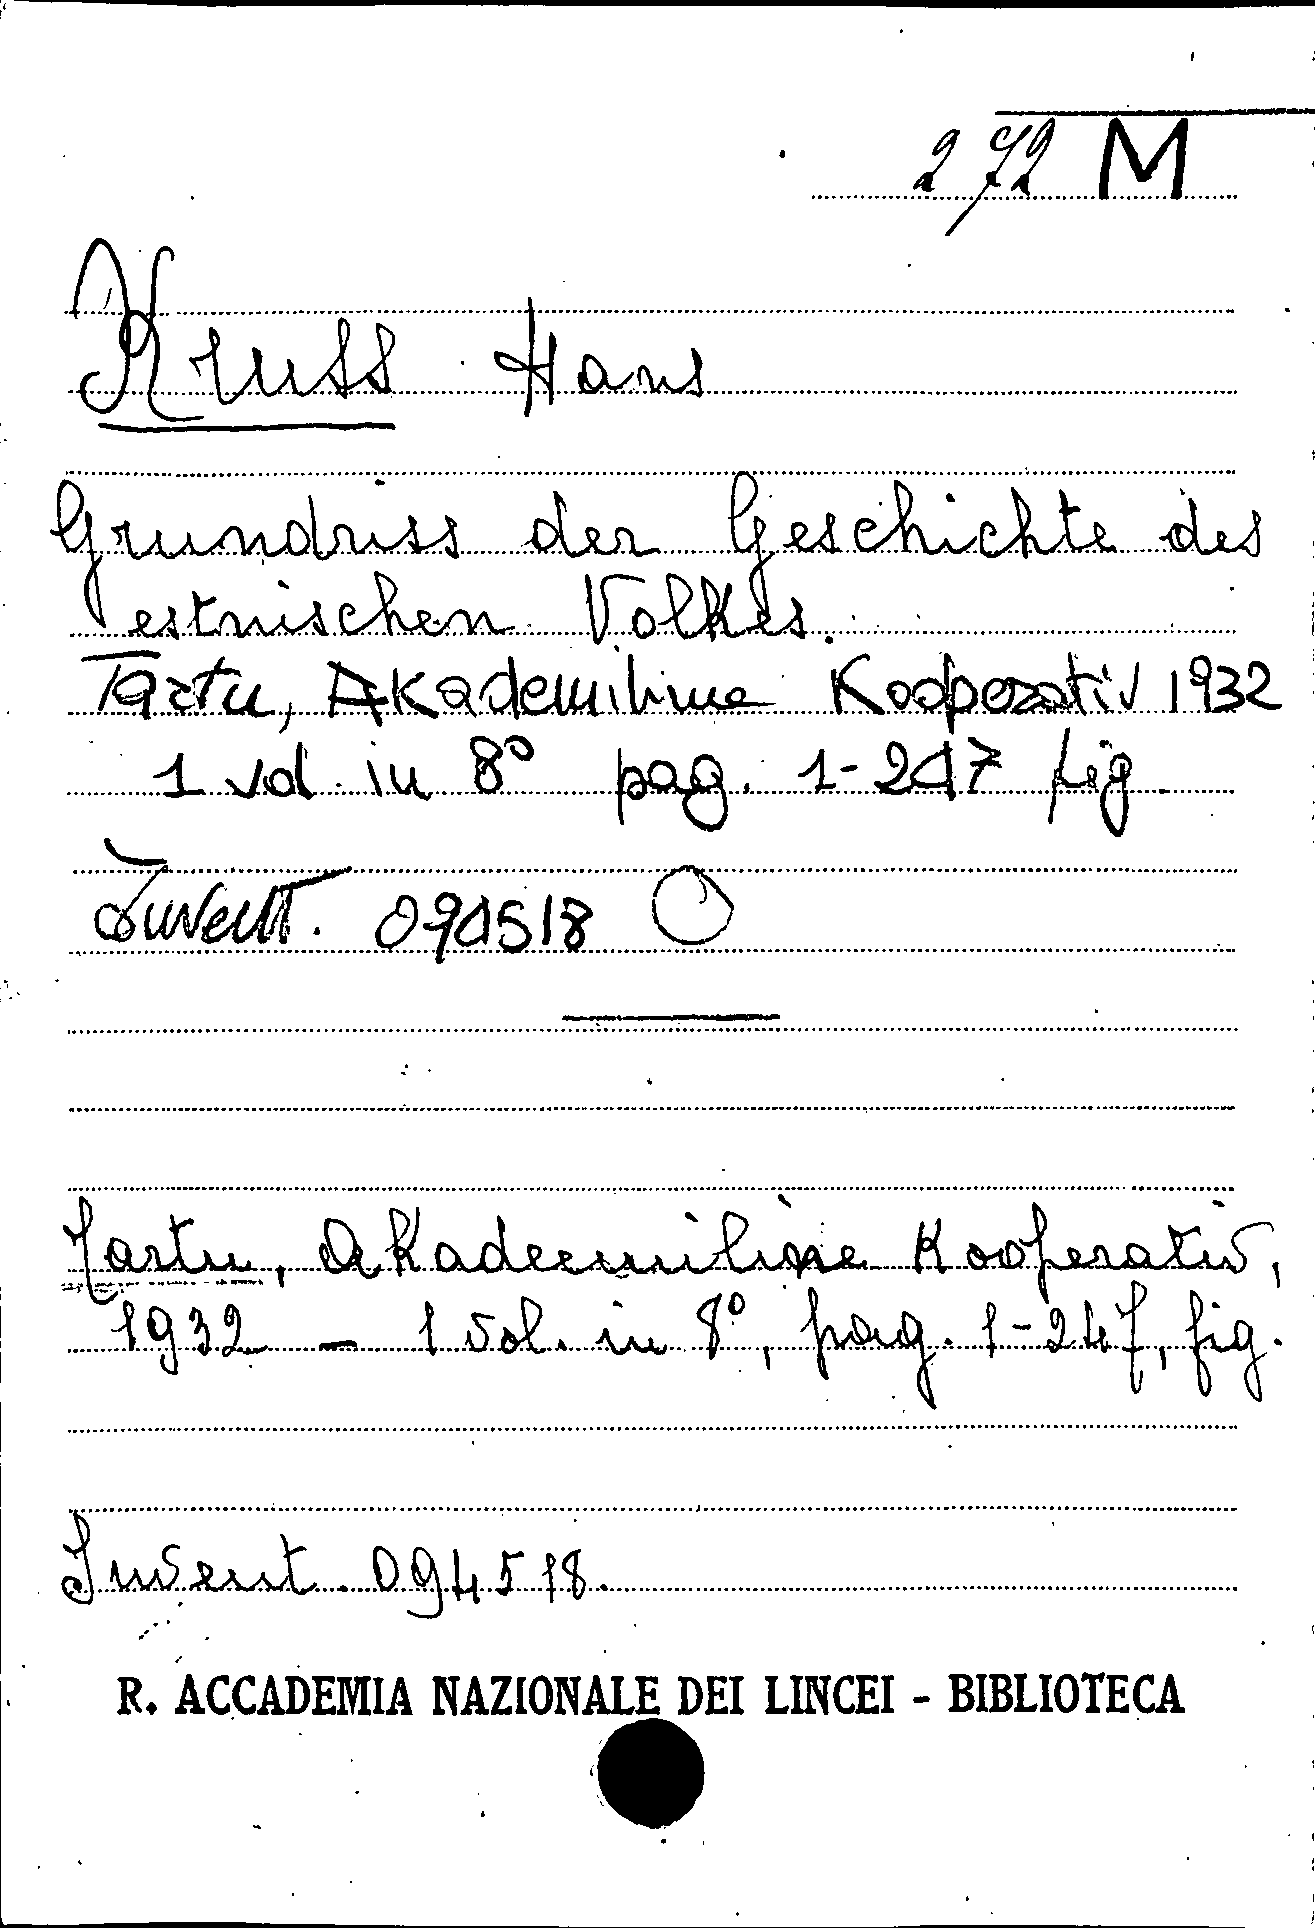 272 M
Kruss Hans
Grundriss der Geschichte des
estnischen Volkes.
Tartu, Akademiline Kooperativ 1932
1 vol in 8° pag. 1-247 fig.
Invent. 094518
Tartu, Akademiline Kooperativ,
1932 - 1 vol. in 8°, pag. 1-247, fig.
Invent. 094518.
R. ACCADEMIA NAZIONALE DEI LINCEI - BIBLIOTECA